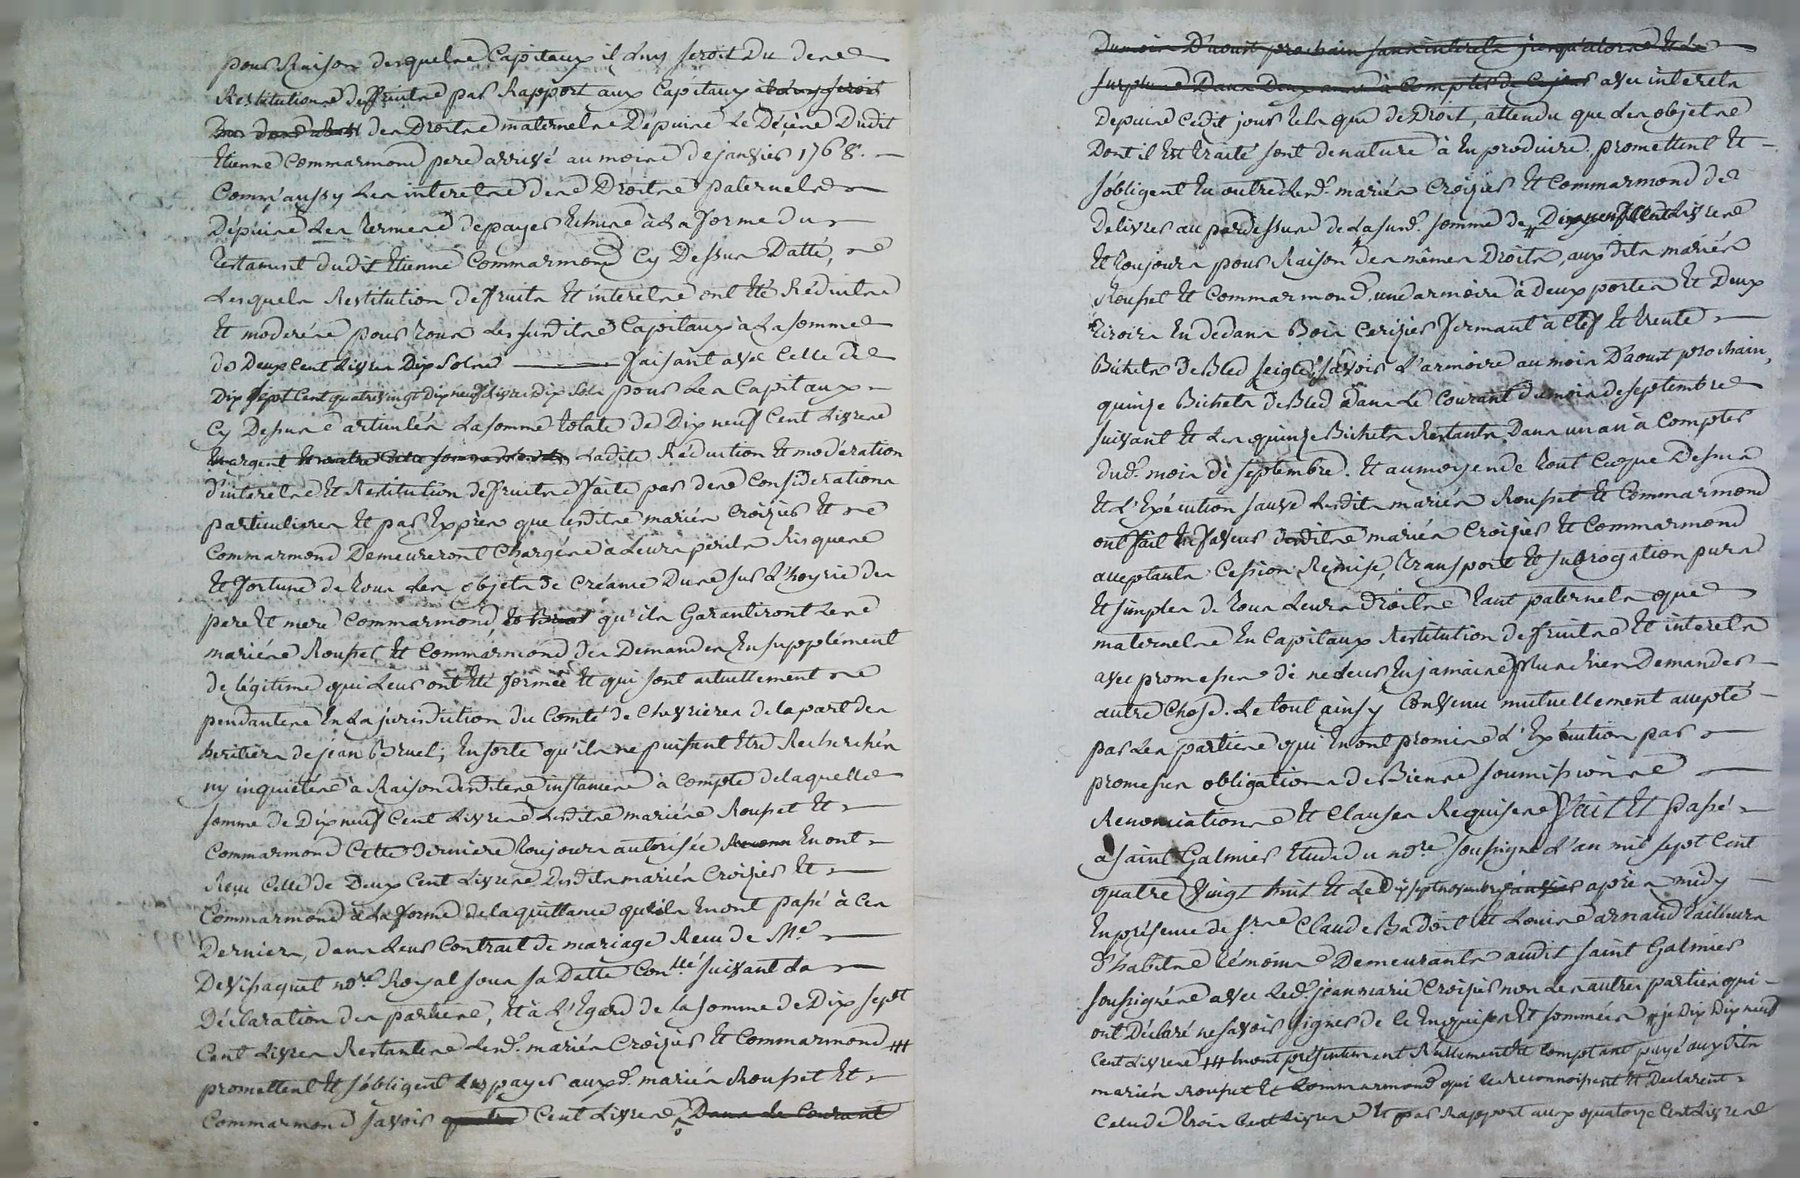 pour Raison desquelse Capitaux il Luy seroit Du dese
Restitutionse deffruitse par Rapport aux Capitaux
des Droitse maternelse Dépuise Le Décèse Dudit
Etienne Commarmond pere arrivé au moise de janvier 1768.
Comm'aussy Les interetse dese Droitse paternelse
Dépuise Les Termese de payer Echuse à La forme du
testament dudit Etienne Commarmond Cy Dessus Datté,
Lesquels Restitution deffruits Et interetse ont Eté Réduitse
Et moderése pour Touse Les susditse Capitaux à La somme
de Deux Cent Livres Dix Solse faisant avec Celle de
Dix sept Cent quatrevingt Dix neuf Livres Dix Sols pour Les Capitaux
Cy Dessuse articulés La somme totale de Dix neuf Cent Livrese
Ladite Réduction Et modération
d'interetse Et Restitution deffruitse faite par dese Considerations
particulieres Et par Exprès que Lesditse mariés Croizier Et
Commarmond Demeureront Chargése à Leurs périls Risquese
Et fortune de Tous Les objets de Créance Duse sur L'hoyrie des
pere Et mere Commarmond qu'ils Garantiront Lese
mariése Rousset Et Commarmond des Demandes En supplément
de légitime qui Leur ont Eté formée Et qui sont actuellement
pendantese En La jurisdiction du Comté de Chevrieres de la part des
héritiers de jean Bruel; En sorte qu'ils ne puissent Etre Recherchés
ny inquiétése à Raison desditese instancese à Compte de laquelle
somme de Dix neuf Cent Livrese Lesditse mariése Rousset Et
Commarmond Cette Derniere Toujours autorisée En ont
Reçu Celle de Deux Cent Livrese Desdits mariés Croizier Et
Commarmond à La forme de la quittance qu'ils En ont passé à Ces
Derniers, dans Leur Contrat de mariage Reçu de Me
Devissaguet nore Royal sous sa Datte Conlle suivant La
Déclaration des partiese, Et à L'Egard de La somme de Dix sept
Cent Livres Restantese Lesd. mariés Croizier Et Commarmond #
promettent Et s'obligent Les payer auxd. mariés Rousset Et
Commarmond savoir Cent Livrese, Dans Le Courant
Dumoise D'aoust prochain sans interetse jusqu'alorse Et Le
surpluse Dans Deux anse à Compter de Ce jour avec interets
depuise cedit jour tels que de Droit, attendu que Les objetse
Dont il Est traité sont de nature à En produire. promettent Et
s'obligent En outre Lesd. mariés Croizier Et Commarmond de
delivrer au pardessuse de La susd. somme de Dix neuf Cent Livrese
Et Toujours pour Raison des mêmes Droits, aux dits mariés
Rousset Et Commarmond une armoire à deux portes Et Deux
tiroirs En dedans Bois Cerizier fermant à Clef Et trente
Bichets de Bled seigle, savoir L'armoire au mois D'aoust prochain,
quinze Bichets de Bled Dans Le Courant du mois de septembre
suivant Et Les quinze Bichets Restants, Dans un an à Compter
dud. mois de septembre. Et au moyen de tout Ce que Dessus
Et L'Exécution sauve Lesdits mariés Rousset Et Commarmond
ont fait En faveur desditse mariés Croizier Et Commarmond
acceptants Cession Remise, transport Et subrogation pure
Et simples de Tous Leurs droitse tant paternels que
maternelse En Capitaux Restitution deffruitse Et interets
avec promesse de ne Leur En jamaise plus Rien Demander
autre Chose. Le tout ainsy Convenu mutuellement accepté
par Les partiese qui En ont promise L'Exécution par
promesses obligationse de Biense soumissionse
Renonciationse Et Clauses Requisese fait Et passé
a saint Galmier Etude du nore soussigné L'an mil sept Cent
quatre Vingt huit Et Le Dix sept novembre après midy
En présence de sre Claude Badoit Et Louise arnaud tailleurs
d'habitse témoinse Demeurants audit saint Galmier
soussignése avec Led. jean marie Croizier non Les autres parties qui
ont Déclaré ne savoir signer de Ce Enquises Et sommées # je Dix Dix neuf
Cent Livrese # En ont présentement Réellement Et Comptant payé aux dits
mariés Rousset Et Commarmond qui Le Reconnoissent Et Declarent
Celle de trois Cent Livrese Et par Rapport aux quatorze Cent Livrese